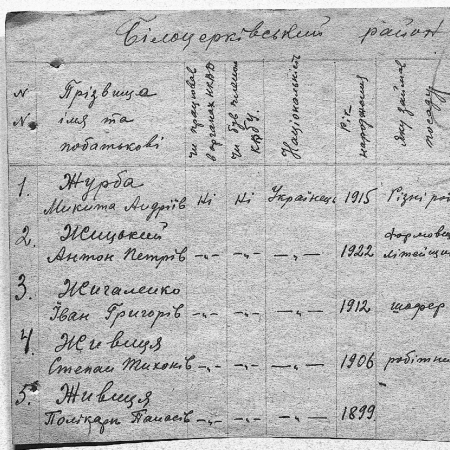 Білоцерківський район
№ №
Прізвища
імя та
побатькові
Чи працював
в органах НКВД
Чи був членом
КПбУ.
Національність
Рік
народження
яку займав
посаду
1. Журба
Микита Андріїв Ні Ні Українець 1915 Різні
2. Жицький
Антон Петрів —„— —„— —„— 1922
3. Жигаленко
Іван Григорів —„— —„— —„— 1912 шофер
4. Живиця
Степан Тихонів —„— —„— —„— 1906 робітни
5. Живиця
Полікарп Панасів —„— —„— —„— 1899